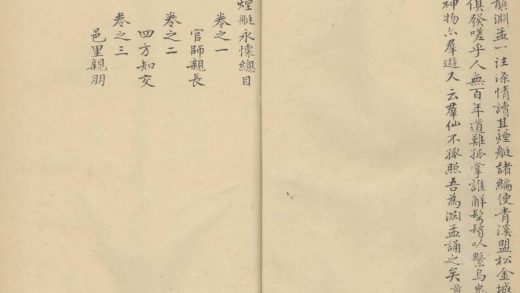 韻淵孟一注深情讀其煙艇諸編使青溪盟松金城
俱發嗟乎人無百年道難孤掌誰解髮鬚以繫烏兔
神物亦羣遊又云羣仙不孤照吾為淵孟誦之矣黃
煙艇永懷總目
卷之一
官師親長
卷之二
四方知交
卷之三
邑里親朋